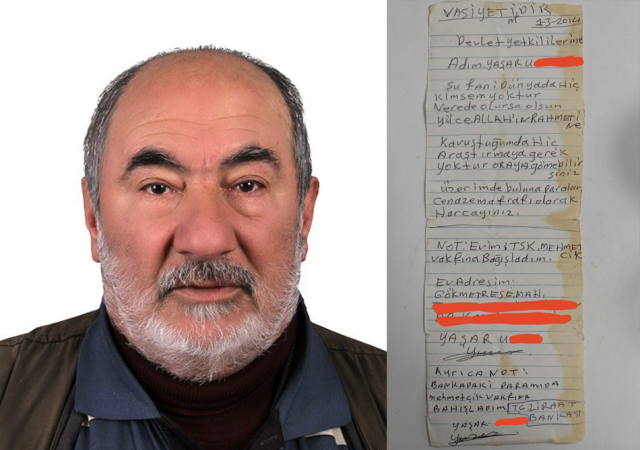 VASİYETİMDİR
1-3-2014
Devlet yetkililerine
Adım, YAŞAR U
Şu fani Dünyada Hiç
kimsem yoktur
Nerede olursa olsun
YÜCE ALLAH'IN RAHMETİ
NE
Kavuştuğumda Hiç
Araştırmaya gerek
yoktur oraya gömebilir
siniz
üzerimde buluna paraları
cenaze mafrafı olarak
Harcayınız.
NOT: Evimi TSK. MEHMET
CİK
vakfına Bağışladım.
Ev Adresim:
GÖKMEYRESE MAH.
YAŞAR U
AYRICA NOT:
BANKADAKİ PARAMIDA
mehmetçik VAKFINA
BAHIŞLADIM TC ZİRAAT
BANKASI
YAŞAR